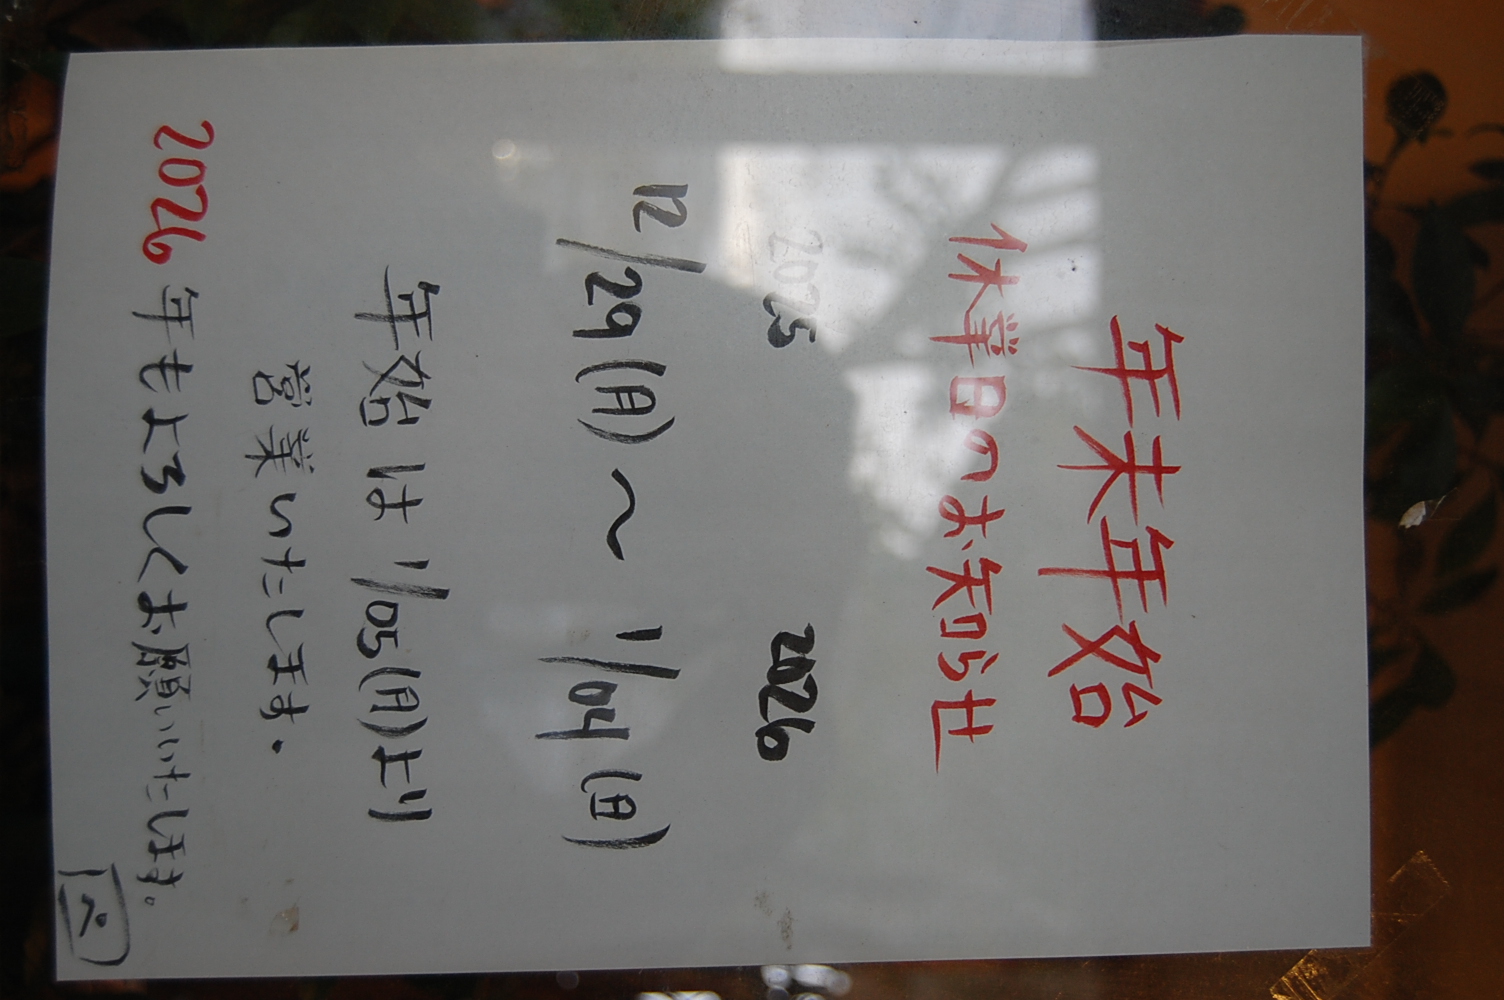 年末年始
休業日のお知らせ
2025 2026
12/29(月)～1/04(日)
年始は1/05(月)より
営業いたします.
2026年もよろしくお願いいたします。